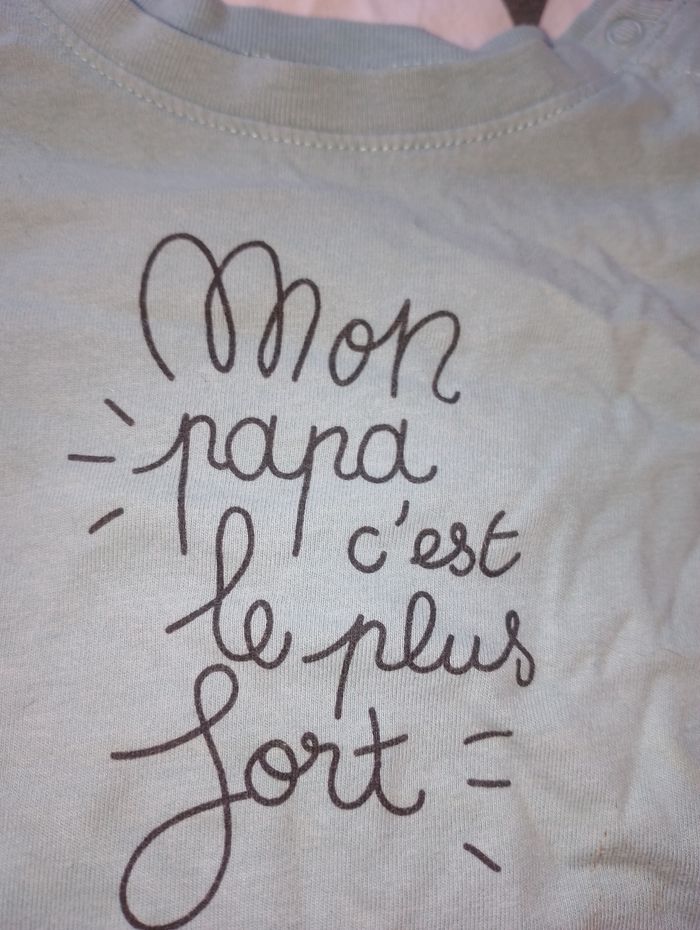 Mon
papa
c'est
le plus
fort